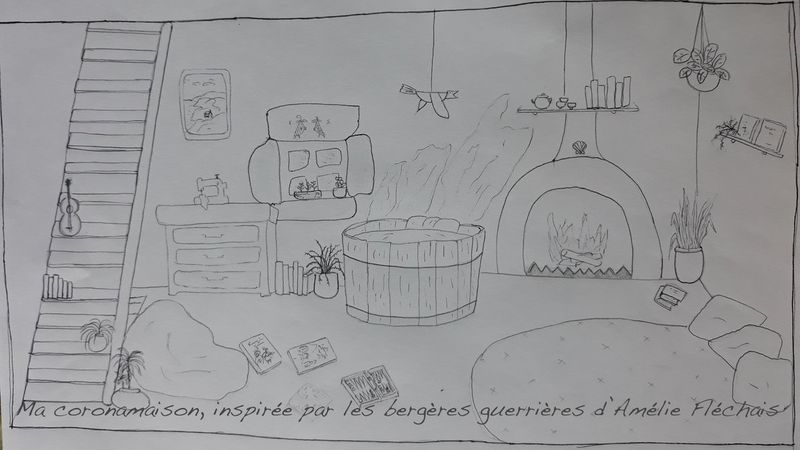 Ma coronamaison, inspirée par les bergères guerrières d'Amélie Fléchais